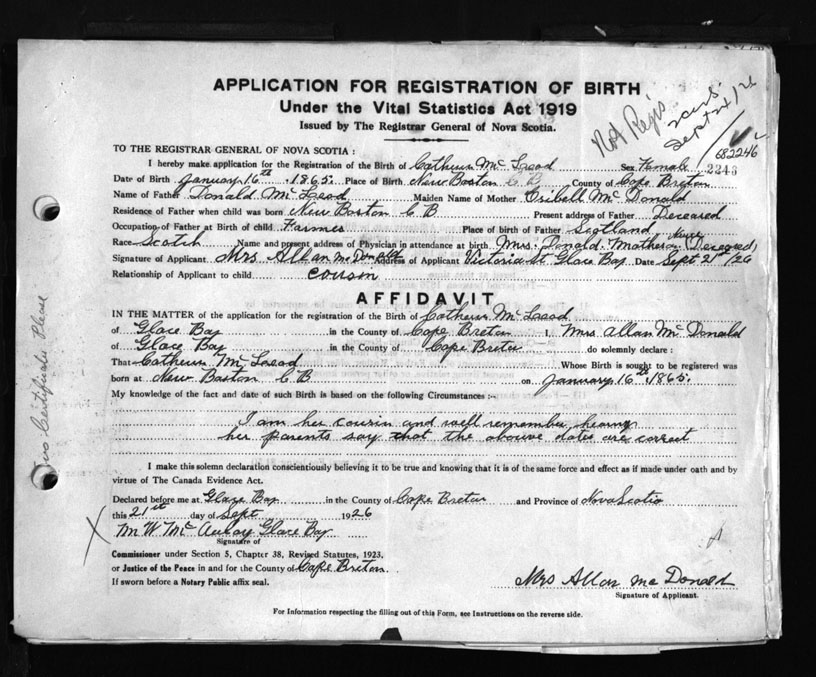 APPLICATION FOR REGISTRATION OF BIRTH
Under the Vital Statistics Act 1919
Issued by The Registrar General of Nova Scotia.
Not Reg's
Sept 24/26
682246
2246
TO THE REGISTRAR GENERAL OF NOVA SCOTIA :
I hereby make application for the Registration of the Birth of Catherin Mc Leod Sex Female
Date of Birth January 16th 1865. Place of Birth New Boston C B County of Cape Breton
Name of Father Donald Mc Leod Maiden Name of Mother Oribell Mc Donald
Residence of Father when child was born New Boston C B Present address of Father Deceased
Occupation of Father at Birth of child Farmer Place of birth of Father Scotland
Race Scotch Name and present address of Physician in attendance at birth Nurse Mrs. Donald Matheson (Deceased)
Signature of Applicant Mrs Allan Mc Donald Address of Applicant Victoria St. Glace Bay Date Sept 21st/26
Relationship of Applicant to child cousin
AFFIDAVIT
IN THE MATTER of the application for the registration of the Birth of Catherin Mc Leod
of Glace Bay in the County of Cape Breton I, Mrs Allan Mc Donald
of Glace Bay in the County of Cape Breton do solemnly declare :
That Catherin Mc Leod Whose Birth is sought to be registered was
born at New Boston C B on January 16th 1865.
My knowledge of the fact and date of such Birth is based on the following Circumstances :-
I am her cousin and well remember hearing
her parents say that the above dates are correct
I make this solemn declaration conscientiously believing it to be true and knowing that it is of the same force and effect as if made under oath and by
virtue of The Canada Evidence Act.
Declared before me at Glace Bay in the County of Cape Breton and Province of Nova Scotia
this 21st day of Sept 1926
X M W Mc Aulay Glace Bay
Signature of
Commissioner under Section 5, Chapter 38, Revised Statutes, 1923.
or Justice of the Peace in and for the County of Cape Breton.
If sworn before a Notary Public affix seal.
Mrs Allan Mc Donald
Signature of Applicant.
For Information respecting the filling out of this Form, see Instructions on the reverse side.
two Certificates Please